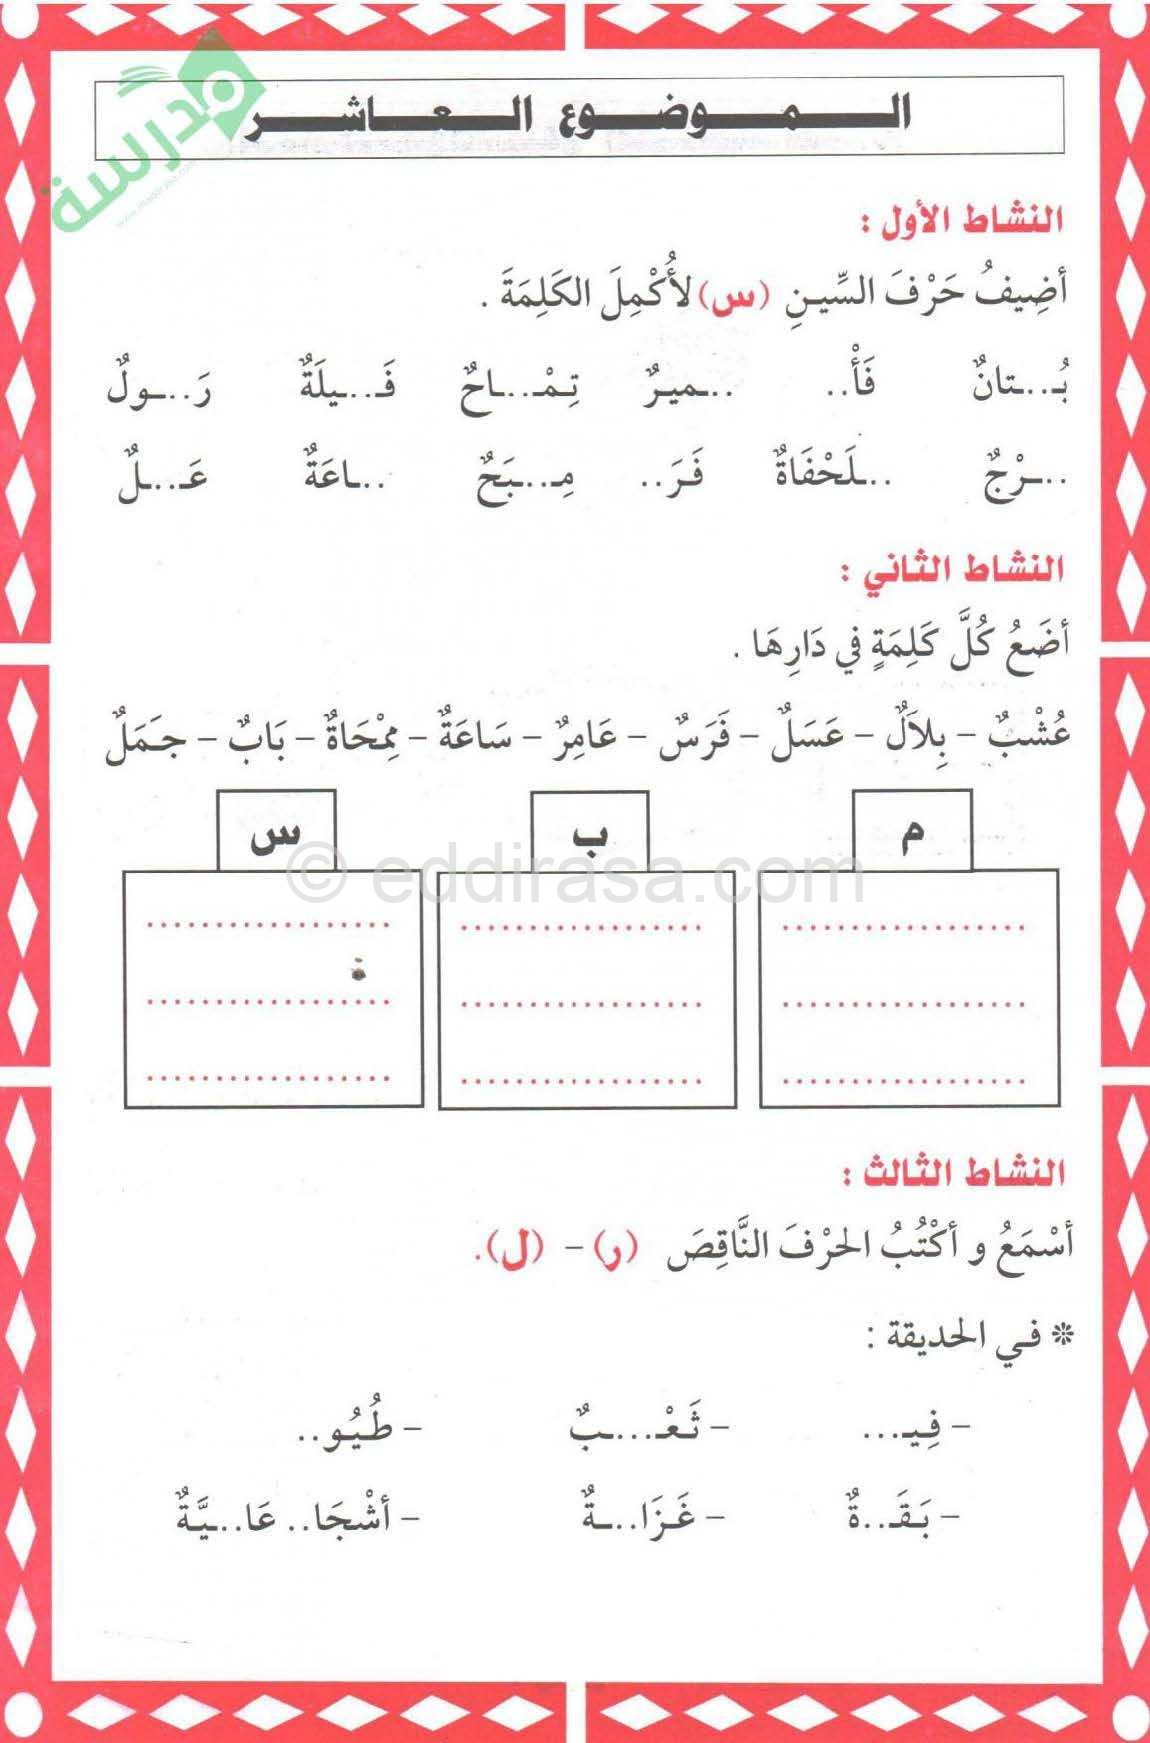 الموضوع العاشر
مدرسة
النشاط الأول :
أضِيفُ حَرْفَ السِّينِ (س) لأُكْمِلَ الكَلِمَةَ .
بُـ...ـتانٌ فَأْ.. ..ـميرٌ تِمْـ...ـاحٌ فَـ...ـيلَةٌ رَ...ـولٌ
..ـرْجٌ ..ـلَحْفَاةٌ فَرَ.. مِـ...ـبَحٌ ..ـاعَةٌ عَـ...ـلٌ
النشاط الثاني :
أضَعُ كُلَّ كَلِمَةٍ في دَارِهَا .
عُشْبٌ – بِلاَلٌ – عَسَلٌ – فَرَسٌ – عَامِرٌ – سَاعَةٌ – مِمْحَاةٌ – بَابٌ – جـَمَلٌ
م ب س
© eddirasa.com
النشاط الثالث :
أسْمَعُ و أكْتُبُ الحرْفَ النَّاقِصَ (ر) – (ل).
* في الحديقة :
– فِيـ... – ثَعْـ...ـبٌ – طُيُو..
– بَقَـ..ةٌ – غَزَا..ـةٌ – أشْجَا.. عَا..ـيَّةٌ